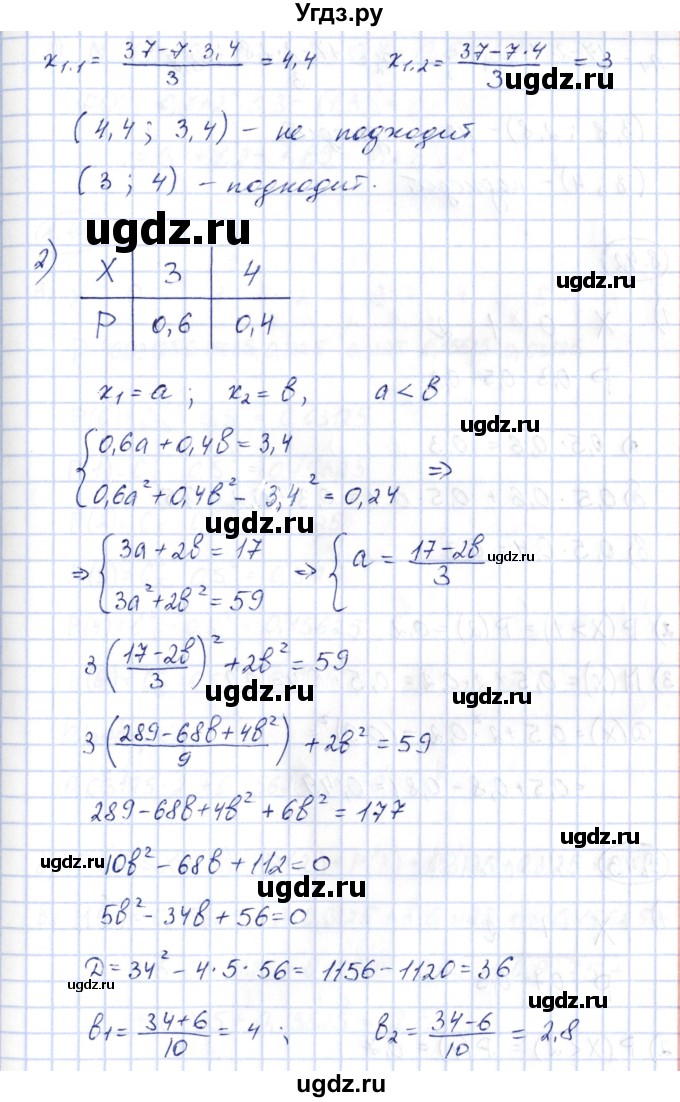 Угдз.ру
x₁.₁ = (37−7·3,4)/3 = 4,4    x₁.₂ = (37−7·4)/3 = 3
ugdz.ru
(4,4; 3,4) – не подходит
ugdz.ru
(3; 4) – подходит.
ugdz.ru
2) X | 3 | 4
ugdz.ru
P | 0,6 | 0,4
ugdz.ru
x₁ = a; x₂ = в, a < в
ugdz.ru
{ 0,6a + 0,4в = 3,4
0,6a² + 0,4в² − 3,4² = 0,24 ⇒
ugdz.ru
⇒ { 3a + 2в = 17
3a² + 2в² = 59 ⇒ { a = (17−2в)/3
ugdz.ru
3((17−2в)/3)² + 2в² = 59
ugdz.ru ugdz.ru
3((289−68в+4в²)/9) + 2в² = 59
289−68в+4в² + 6в² = 177
ugdz.ru
10в² − 68в + 112 = 0
ugdz.ru ugdz.ru
5в² − 34в + 56 = 0
D = 34² − 4·5·56 = 1156 − 1120 = 36
ugdz.ru ugdz.ru
в₁ = (34+6)/10 = 4;    в₂ = (34−6)/10 = 2,8
ugdz.ru